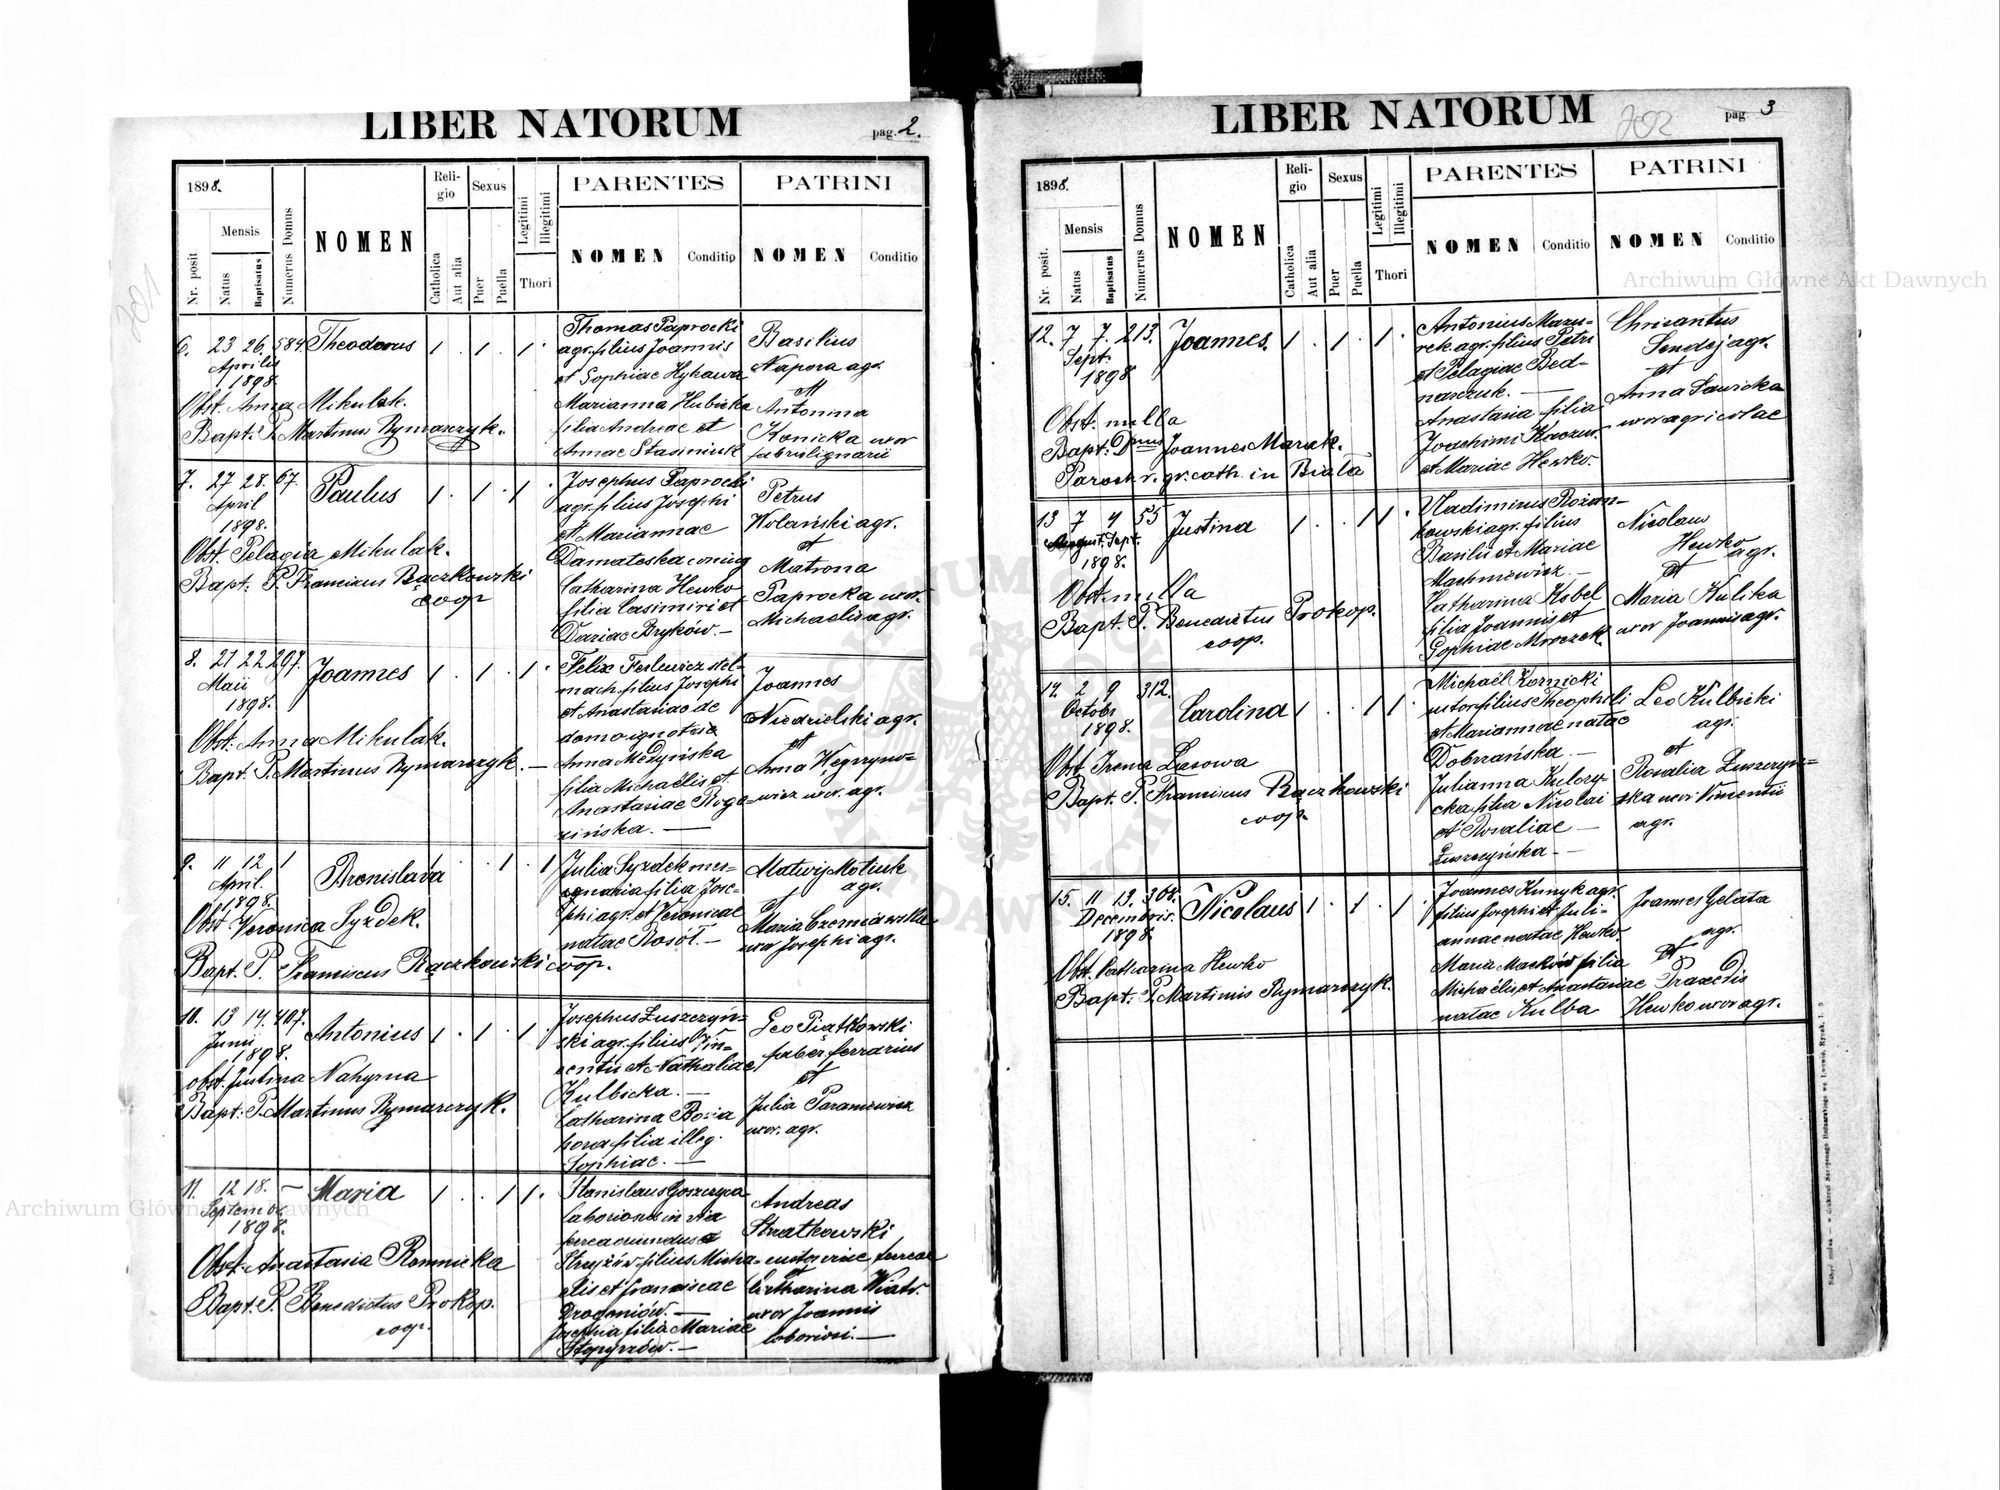 LIBER NATORUM
pag. 2.
1898.
Reli-
gio
Sexus
Legitimi
Illegitimi
PARENTES
PATRINI
Nr. posit
Mensis
Natus
Baptisatus
Numerus Domus
NOMEN
Catholica
Aut alia
Puer
Puella
Thori
NOMEN
Conditio
NOMEN
Conditio
6. 23 26. 584. Theodorus 1 . 1 . 1 .
Aprilis
1898.
Obst. Anna Mikulak.
Bapt. P. Martinus Rymarczyk.
Thomas Paprocki
agr. filius Joannis
et Sophiae Hyhawa
Marianna Hubicka
filia Andreae et
Annae Stasiniuk
Basilius
Napora agr.
et
Antonina
Konicka uxor
fabrilignarii
7. 27 28. 67. Paulus 1 . 1 . 1 .
April
1898.
Obst. Pelagia Mikulak.
Bapt. P. Franciscus Rączkowski
coop
Josephus Paprocki
agr. filius Josephi
et Mariannae
Catharina Hewko
filia Casimiri et
Dariae Bryków. —
Petrus
Wolański agr.
et
Matrona
Paprocka uxor.
Michaelis agr.
8. 21 22 297. Joannes 1 . 1 . 1 .
Maii
1898.
Obst. Anna Mikulak.
Bapt. P. Martinus Rymarczyk. —
Felix Ferlewicz stel-
mach. filius Josephi
et Anastasiae de
domo ignotae
Anna Medyńska
filia Michaëlis et
Anastasiae Rogo-
zińska. —
Joannes
Niedzielski agr.
et
Anna Węgrzyno-
wicz uxor. agr.
9. 11 12 1 Bronislava . 1 . 1
April.
1898.
Obst Veronica Syzdek.
Bapt. P. Franciscus Rączkowski coop.
Julia Syzdek mer-
cenaria filia Jose-
phi agr. et Veronicae
natae Rosół. —
Matwij Motiuk
agr.
et
Maria Czerniawska
uxor Josephi agr.
10. 13 14. 407. Antonius 1 . 1 . 1 .
Junii
1898.
obst. Justina Nahyrna
Bapt. P. Martinus Rymarczyk.
Josephus Łuszczyń-
ski agr. filius Vin-
centii et Nathaliae
Kulbicka. —
Catharina
filia illeg.
Sophiae. —
Leo Piątkowski
faber ferrarius
et
Julia Paraniewicz
uxor. agr.
11. 12 18. — Maria 1 . . 1 1 .
Septembr.
1898.
Obst. Anastasia Romnicka
Bapt. P. Benedictus Prokop.
coop.
Stanislaus Goszczyca
laboriosus in via
ferrea oriundus
Stryżów filius Micha-
elis et Franciscae
Dragoniów. —
Josephia filia Mariae
Stopyrów. —
Andreas
Stratkowski
custos viae ferreae
et
Catharina Wiatr.
uxor Joannis
laboriosi. —
LIBER NATORUM
202
pag 3
1898.
Reli-
gio
Sexus
Legitimi
Illegitimi
PARENTES
PATRINI
Nr. posit.
Mensis
Natus
Baptisatus
Numerus Domus
NOMEN
Catholica
Aut alia
Puer
Puella
Thori
NOMEN
Conditio
NOMEN
Conditio
12. 7 7. 213. Joannes. 1 . 1 . 1 .
Sept.
1898
Obst. nulla
Bapt. Dnus Joannes Marak.
Paroch r. gr. cath. in Biała
Antonius Mazu-
rek agr. filius Petri
et Pelagiae Bed-
narczuk. —
Anastasia filia
Joachimi Kaczur.
et Mariae Hewko.
Chrisantus
Sendej agr.
et
Anna Sawicka
uxor agricolae
13 7 4 55 Justina 1 . . 1 1 .
August. Sept.
1898.
Obst. nulla
Bapt. P. Benedictus Prokop.
coop.
Vladimirus Rożan-
kowski agr. filius
Basilii et Mariae
Machniewicz. —
Catharina Kobel
filia Joannis et
Sophiae Mroczek
Nicolaus
Hewko agr.
et
Maria Kulika
uxor Joannis agr.
14. 2 9 312. Carolina 1 . . 1 1 .
Octobr
1898.
Obst. Irena Lasowa
Bapt. P. Franciscus Rączkowski
coop.
Michaël Kornicki
sutor filius Theophili
et Mariannae natae
Dobrzańska. —
Julianna Kulczy-
cka filia Nicolai
et Rosaliae —
Łuszczyńska. —
Leo Kulbicki
agr.
et
Rosalia Łuszczyn-
ska uxor Vincentii
agr.
15. 11 13. 308. Nicolaus 1 . 1 . 1 .
Decembris.
1898.
Obst. Catharina Hewko
Bapt. P. Martinus Rymarczyk.
Joannes Kunyk agr.
filius Josephi et Juli-
annae natae Hewko.
Maria Macków filia
Michaëlis et Anastasiae
natae Kulba
Joannes Gelata
agr.
et
Praxedis
Hewko uxor agr.
Archiwum Główne Akt Dawnych
Archiwum Główne Akt Dawnych